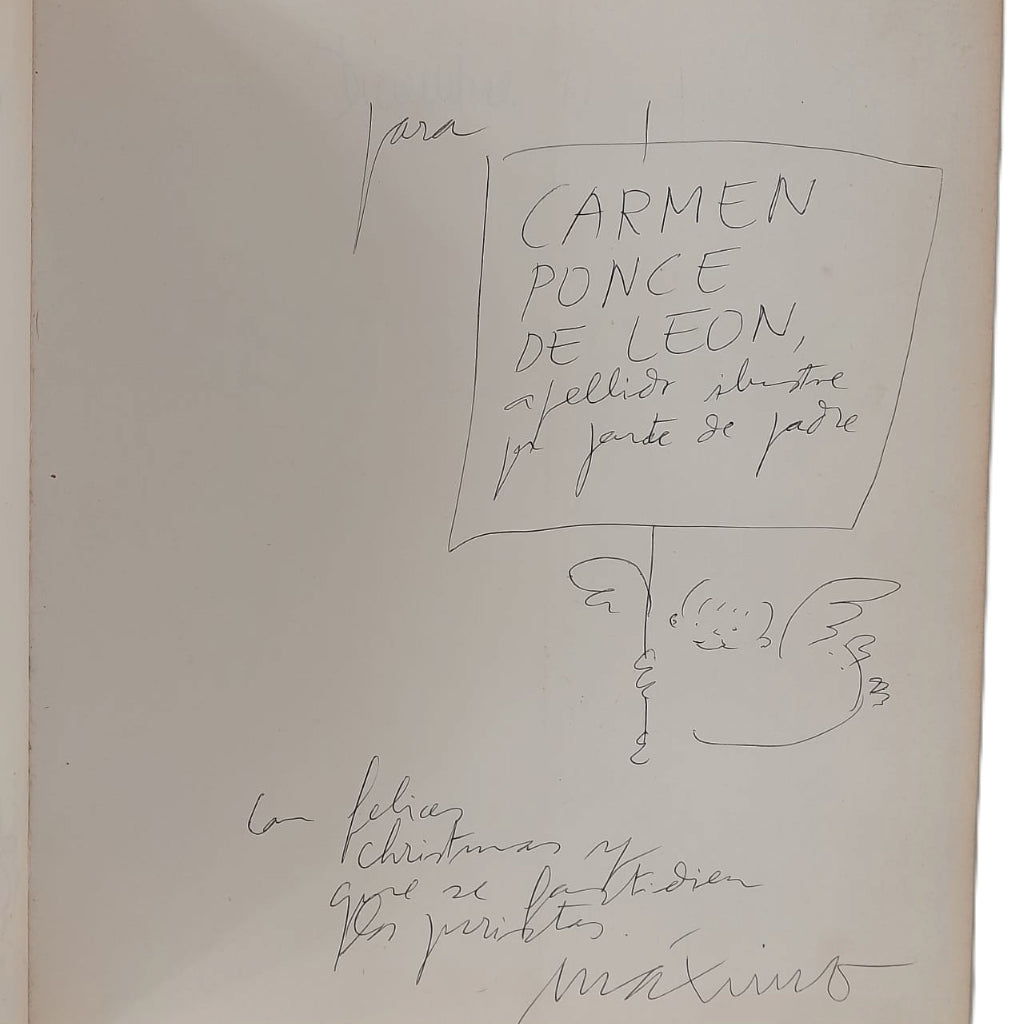 para
CARMEN
PONCE
DE LEON,
apellido ilustre
por parte de padre
Con felices
christmas y
que se fastidien
los puristas.
máximo